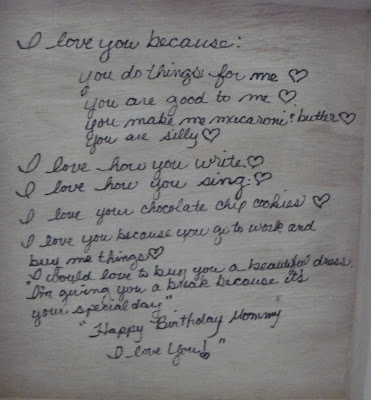 I love you because:
you do things for me ♡
you are good to me ♡
you make me macaroni & butter ♡
you are silly ♡
I love how you write. ♡
I love how you sing. ♡
I love your chocolate chip cookies ♡
I love you because you go to work and
buy me things ♡
"I would love to buy you a beautiful dress.
"I'm giving you a break because it's
your special day"
"Happy Birthday Mommy
I love You!"